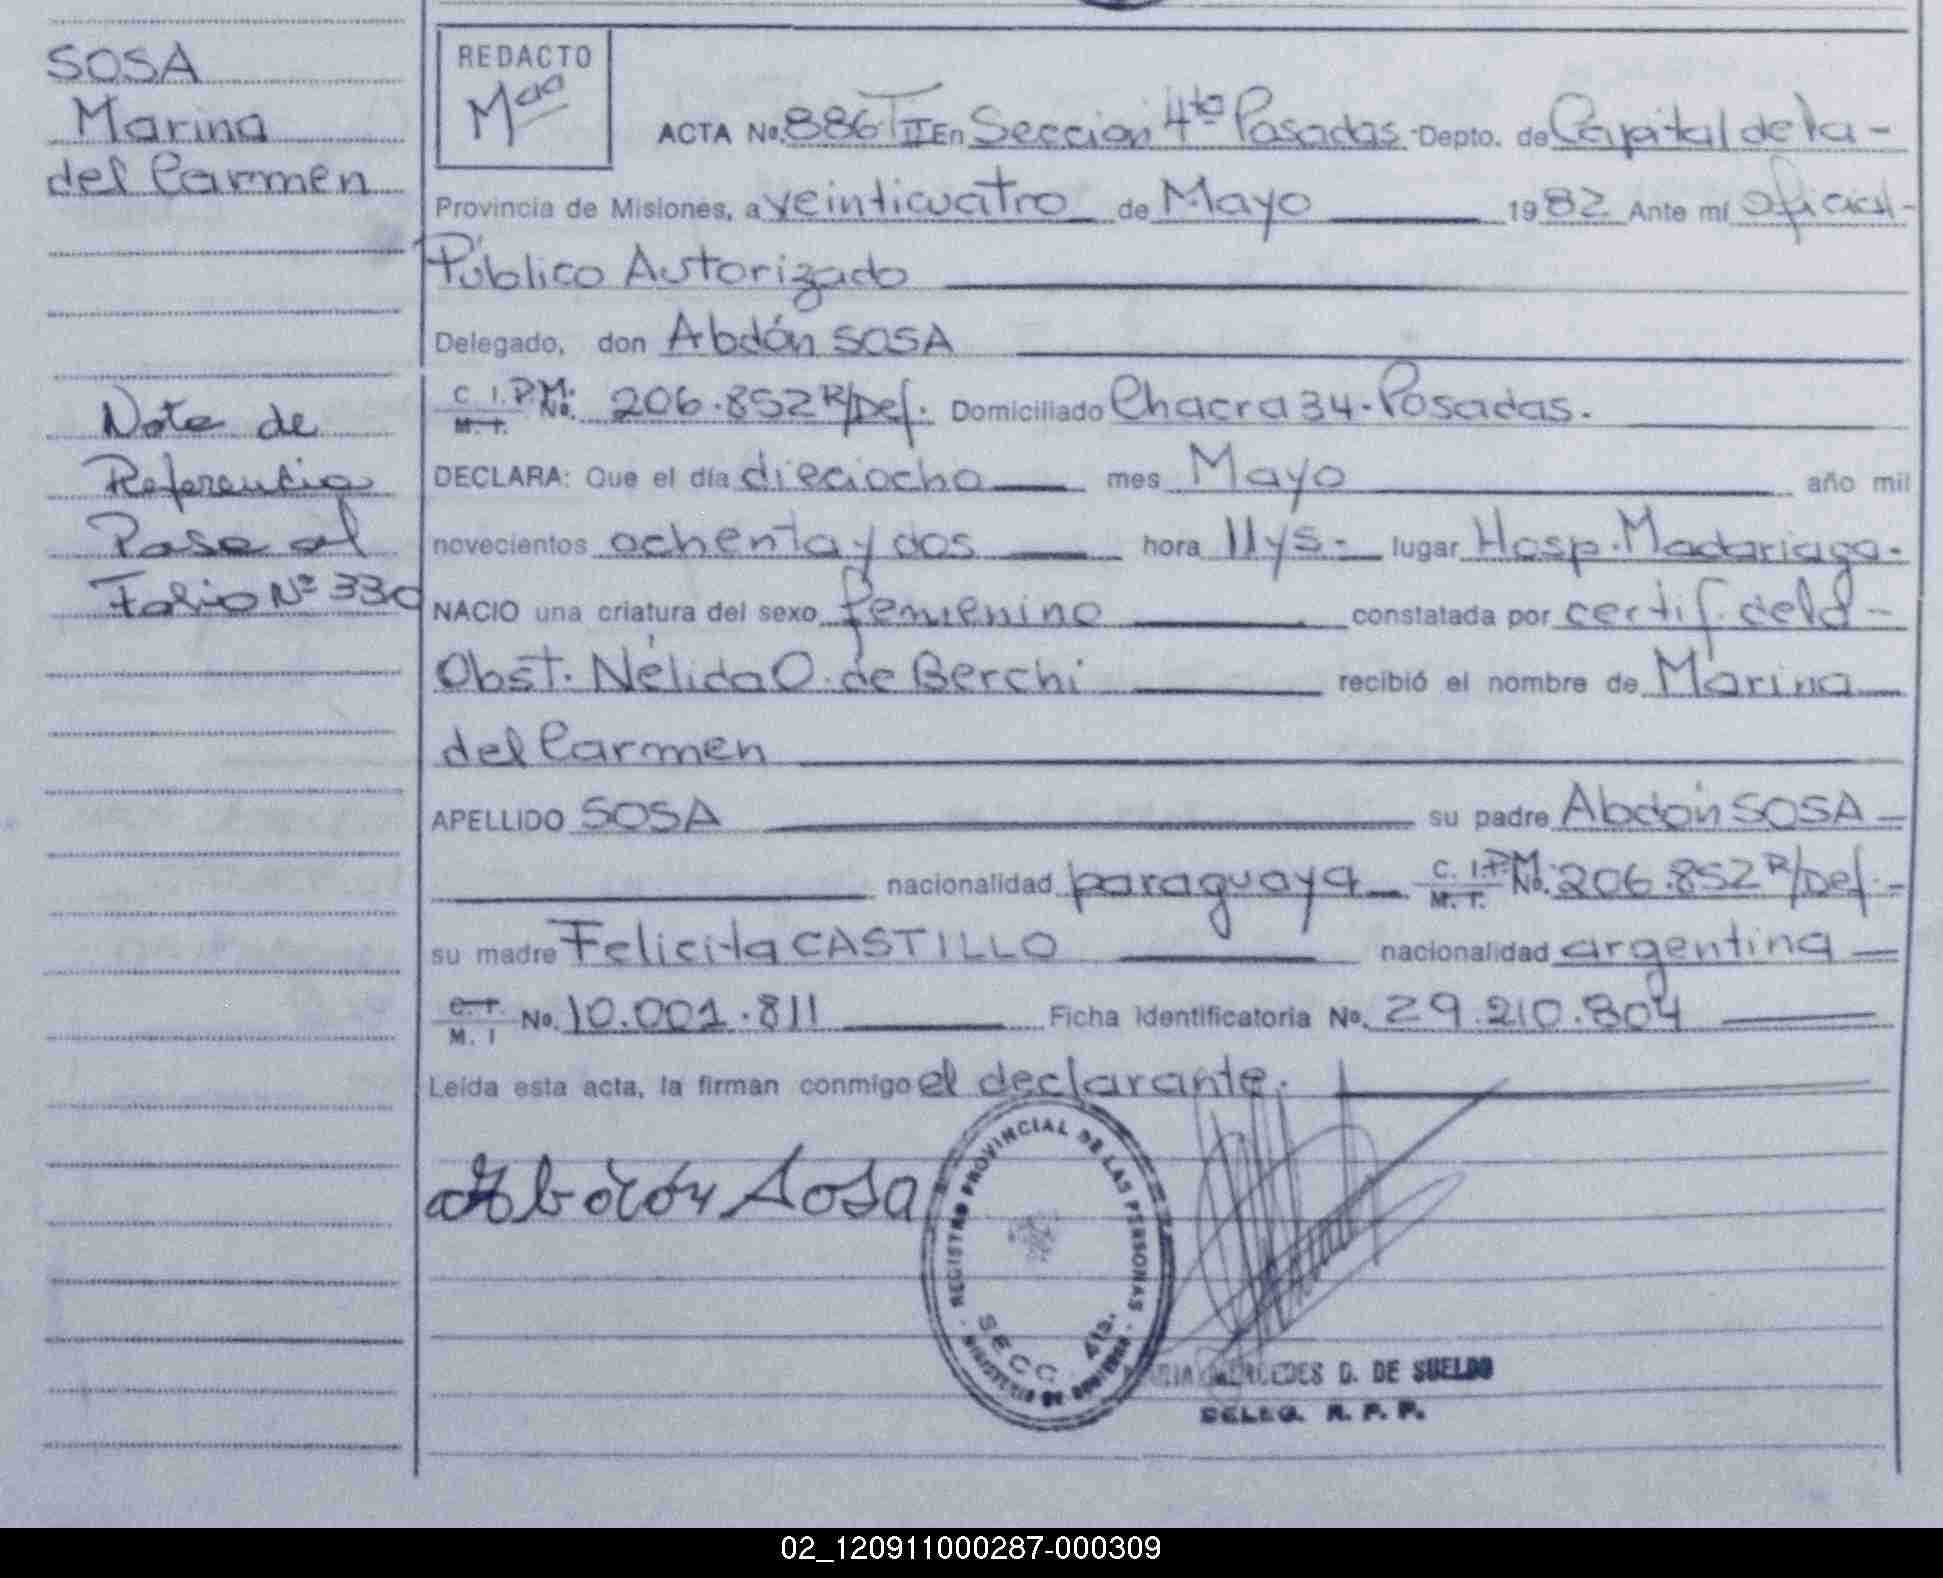 SOSA
Marina
del Carmen
Nota de
Referencia
Pase al
Folio Nº 330
REDACTO
ACTA No. 886 TII En Seccion 4ta Posadas Depto. de Capital de la -
Provincia de Misiones, a veinticuatro de Mayo 1982 Ante mí Oficial -
Público Autorizado
Delegado, don Abdón SOSA
C. I. P.M. No. 206.852 R/Def. Domiciliado Chacra 34. Posadas.
M. I.
DECLARA: Que el día dieciocho mes Mayo año mil
novecientos ochenta y dos hora 11 y 5.- lugar Hosp. Madariaga.
NACIO una criatura del sexo femenino constatada por certif. de la -
Obst. Nélida O. de Berchi recibió el nombre de Marina
del Carmen
APELLIDO SOSA su padre Abdón SOSA -
nacionalidad paraguaya C. I. P.M. No. 206.852 R/Def. -
M. I.
su madre Felicita CASTILLO nacionalidad argentina
C. I. No. 10.001.811 Ficha Identificatoria No. 29.210.804
M. I
Leída esta acta, la firman conmigo el declarante.
Abdón Sosa
REGISTRO PROVINCIAL DE LAS PERSONAS
SECC. 4ta.
MINISTERIO DE GOBIERNO
MERCEDES D. DE SUELDO
DELEG. R. P. P.
02_120911000287-000309